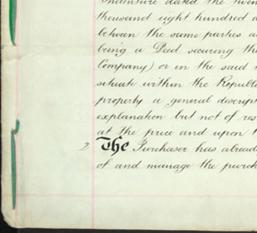 Indenture dated the twen
thousand eight hundred a
between the same parties a
being a Deed securing the
Company) or in the said
situate within the Republi
property a general descript
explanation but not of res
at the price and upon t
2 The Purchaser has alread
of and manage the purch